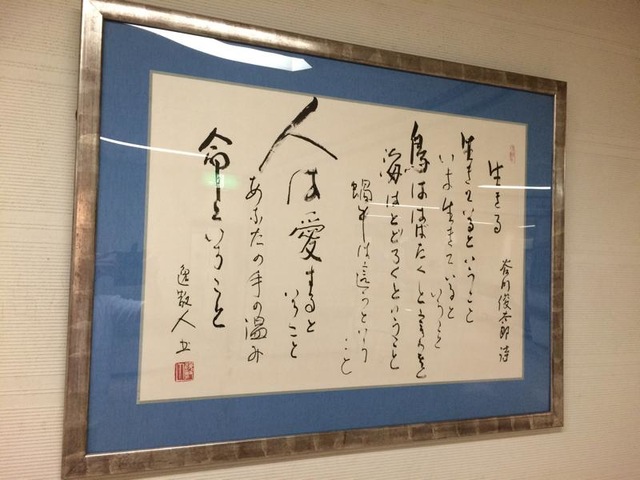 生きる
谷川俊太郎 詩
生きているということ
いま生きていると
いうこと
鳥ははばたくということ
海はとどろくということ
蝸牛は這うという
こと
人は愛すると
いうこと
あなたの手の温み
命ということ
散人